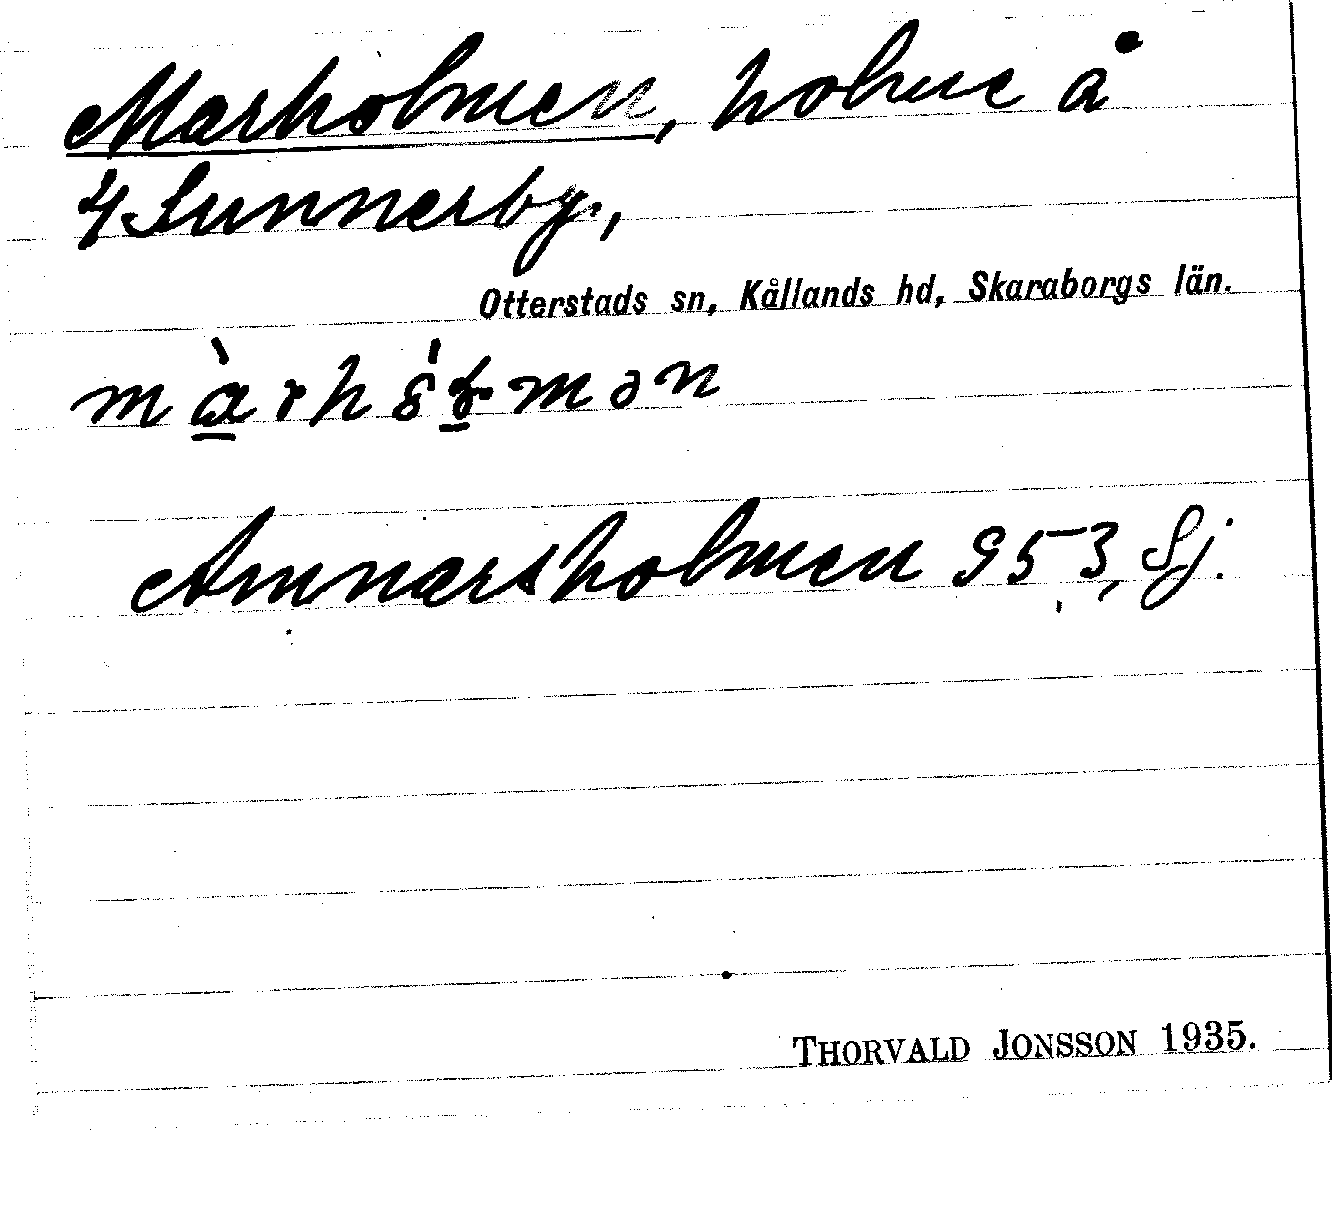 Marholmen, holme å
4 Sunnerby.,
Otterstads sn, Kållands hd, Skaraborgs län.
Amnarsholmen 953, Sj.
THORVALD JONSSON 1935.